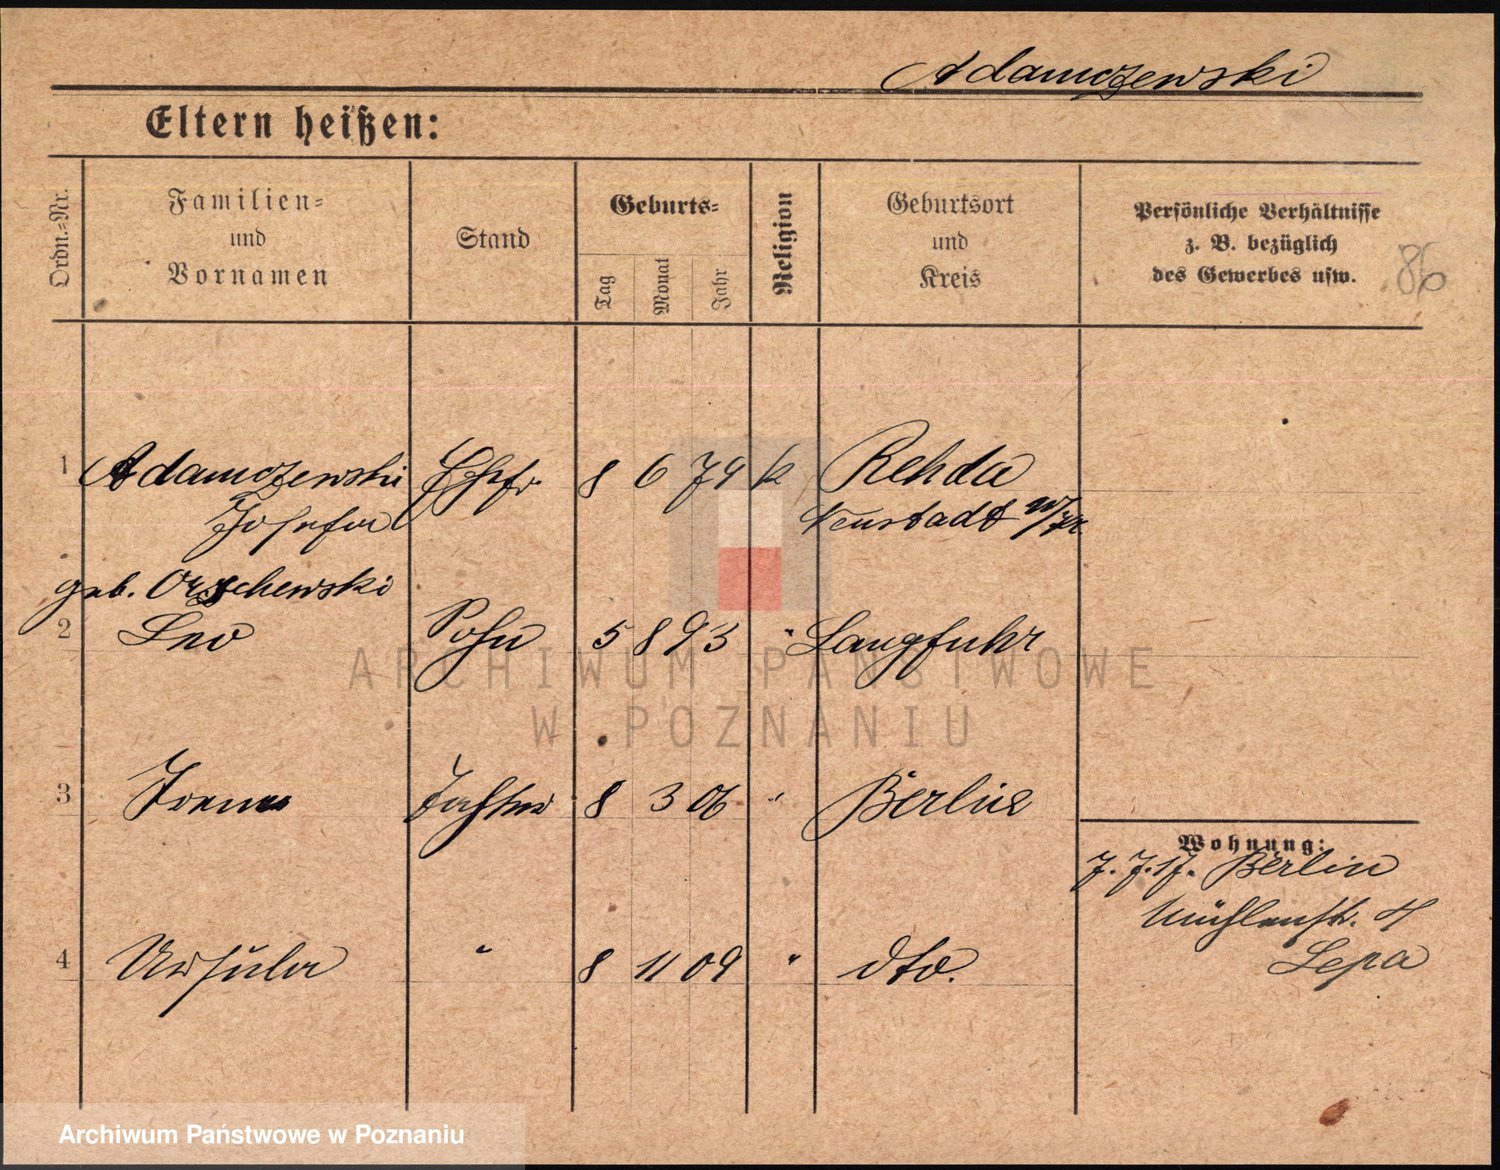 Adamczewski
Eltern heißen:
Ordn.-Nr.
Familien-
und
Vornamen
Stand
Geburts-
Tag
Monat
Jahr
Religion
Geburtsort
und
Kreis
Persönliche Verhältnisse
z. B. bezüglich
des Gewerbes usw.
86
1 Adamczewski Ehefr. 8 6 74 k Rehda
Josefa Neustadt W/Pr.
geb. Orschewski
2 Leo Sohn 5 8 93 " Langfuhr
3 Irene Tochter 8 3 06 " Berlin
Wohnung:
7. 7. 17. Berlin
Mühlenstr. 4
Lepa
4 Ursula " 8 11 09 " dto.
ARCHIWUM PAŃSTWOWE
W POZNANIU
Archiwum Państwowe w Poznaniu